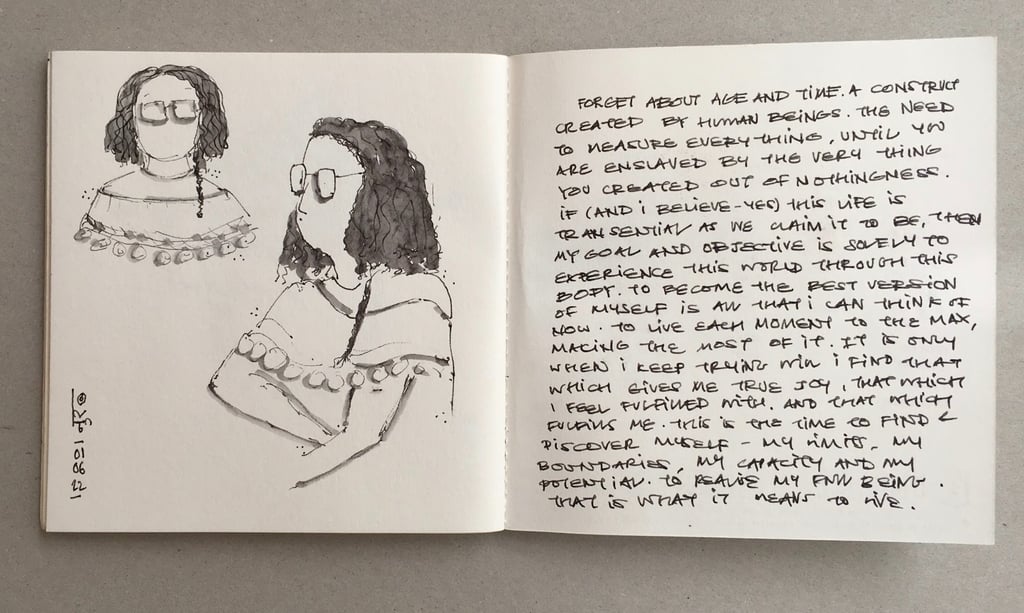 FORGET ABOUT AGE AND TIME. A CONSTRUCT
CREATED BY HUMAN BEINGS. THE NEED
TO MEASURE EVERYTHING, UNTIL YOU
ARE ENSLAVED BY THE VERY THING
YOU CREATED OUT OF NOTHINGNESS.
IF (AND I BELIEVE-YES) THIS LIFE IS
TRANSENTIAL AS WE CLAIM IT TO BE, THEN
MY GOAL AND OBJECTIVE IS SOLELY TO
EXPERIENCE THIS WORLD THROUGH THIS
BODY. TO BECOME THE BEST VERSION
OF MYSELF IS ALL THAT I CAN THINK OF
NOW. TO LIVE EACH MOMENT TO THE MAX,
MAKING THE MOST OF IT. IT IS ONLY
WHEN I KEEP TRYING WILL I FIND THAT
WHICH GIVES ME TRUE JOY, THAT WHICH
I FEEL FULFILLED WITH. AND THAT WHICH
FULFILLS ME. THIS IS THE TIME TO FIND &
DISCOVER MYSELF - MY LIMITS, MY
BOUNDARIES, MY CAPACITY AND MY
POTENTIAL. TO REALISE MY FULL BEING.
THAT IS WHAT IT MEANS TO LIVE.